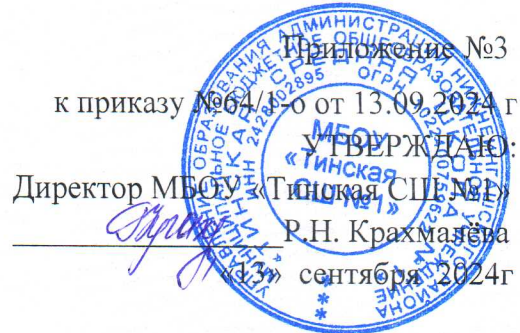 Приложение №3
к приказу №64/1-о от 13.09.2024 г
УТВЕРЖДАЮ:
Директор МБОУ «Тинская СШ №1»
Р.Н. Крахмалёва
«13» сентября 2024г
МБОУ
«Тинская
СШ №1»